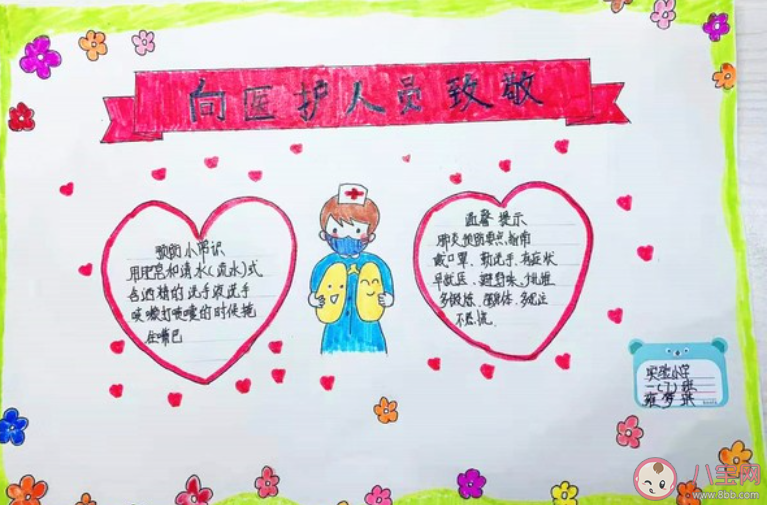 向医护人员致敬
预防小常识
用肥皂和清水(流水)或
含酒精的洗手液洗手
咳嗽打喷嚏的时候捂
住嘴巴
温馨提示
肺炎预防要点指南
戴口罩、勤洗手、有症状
早就医、避野味、
多锻炼、强身体、多关注
不恐慌.
实验小学
一(7)班
八宝网
www.8bb.com